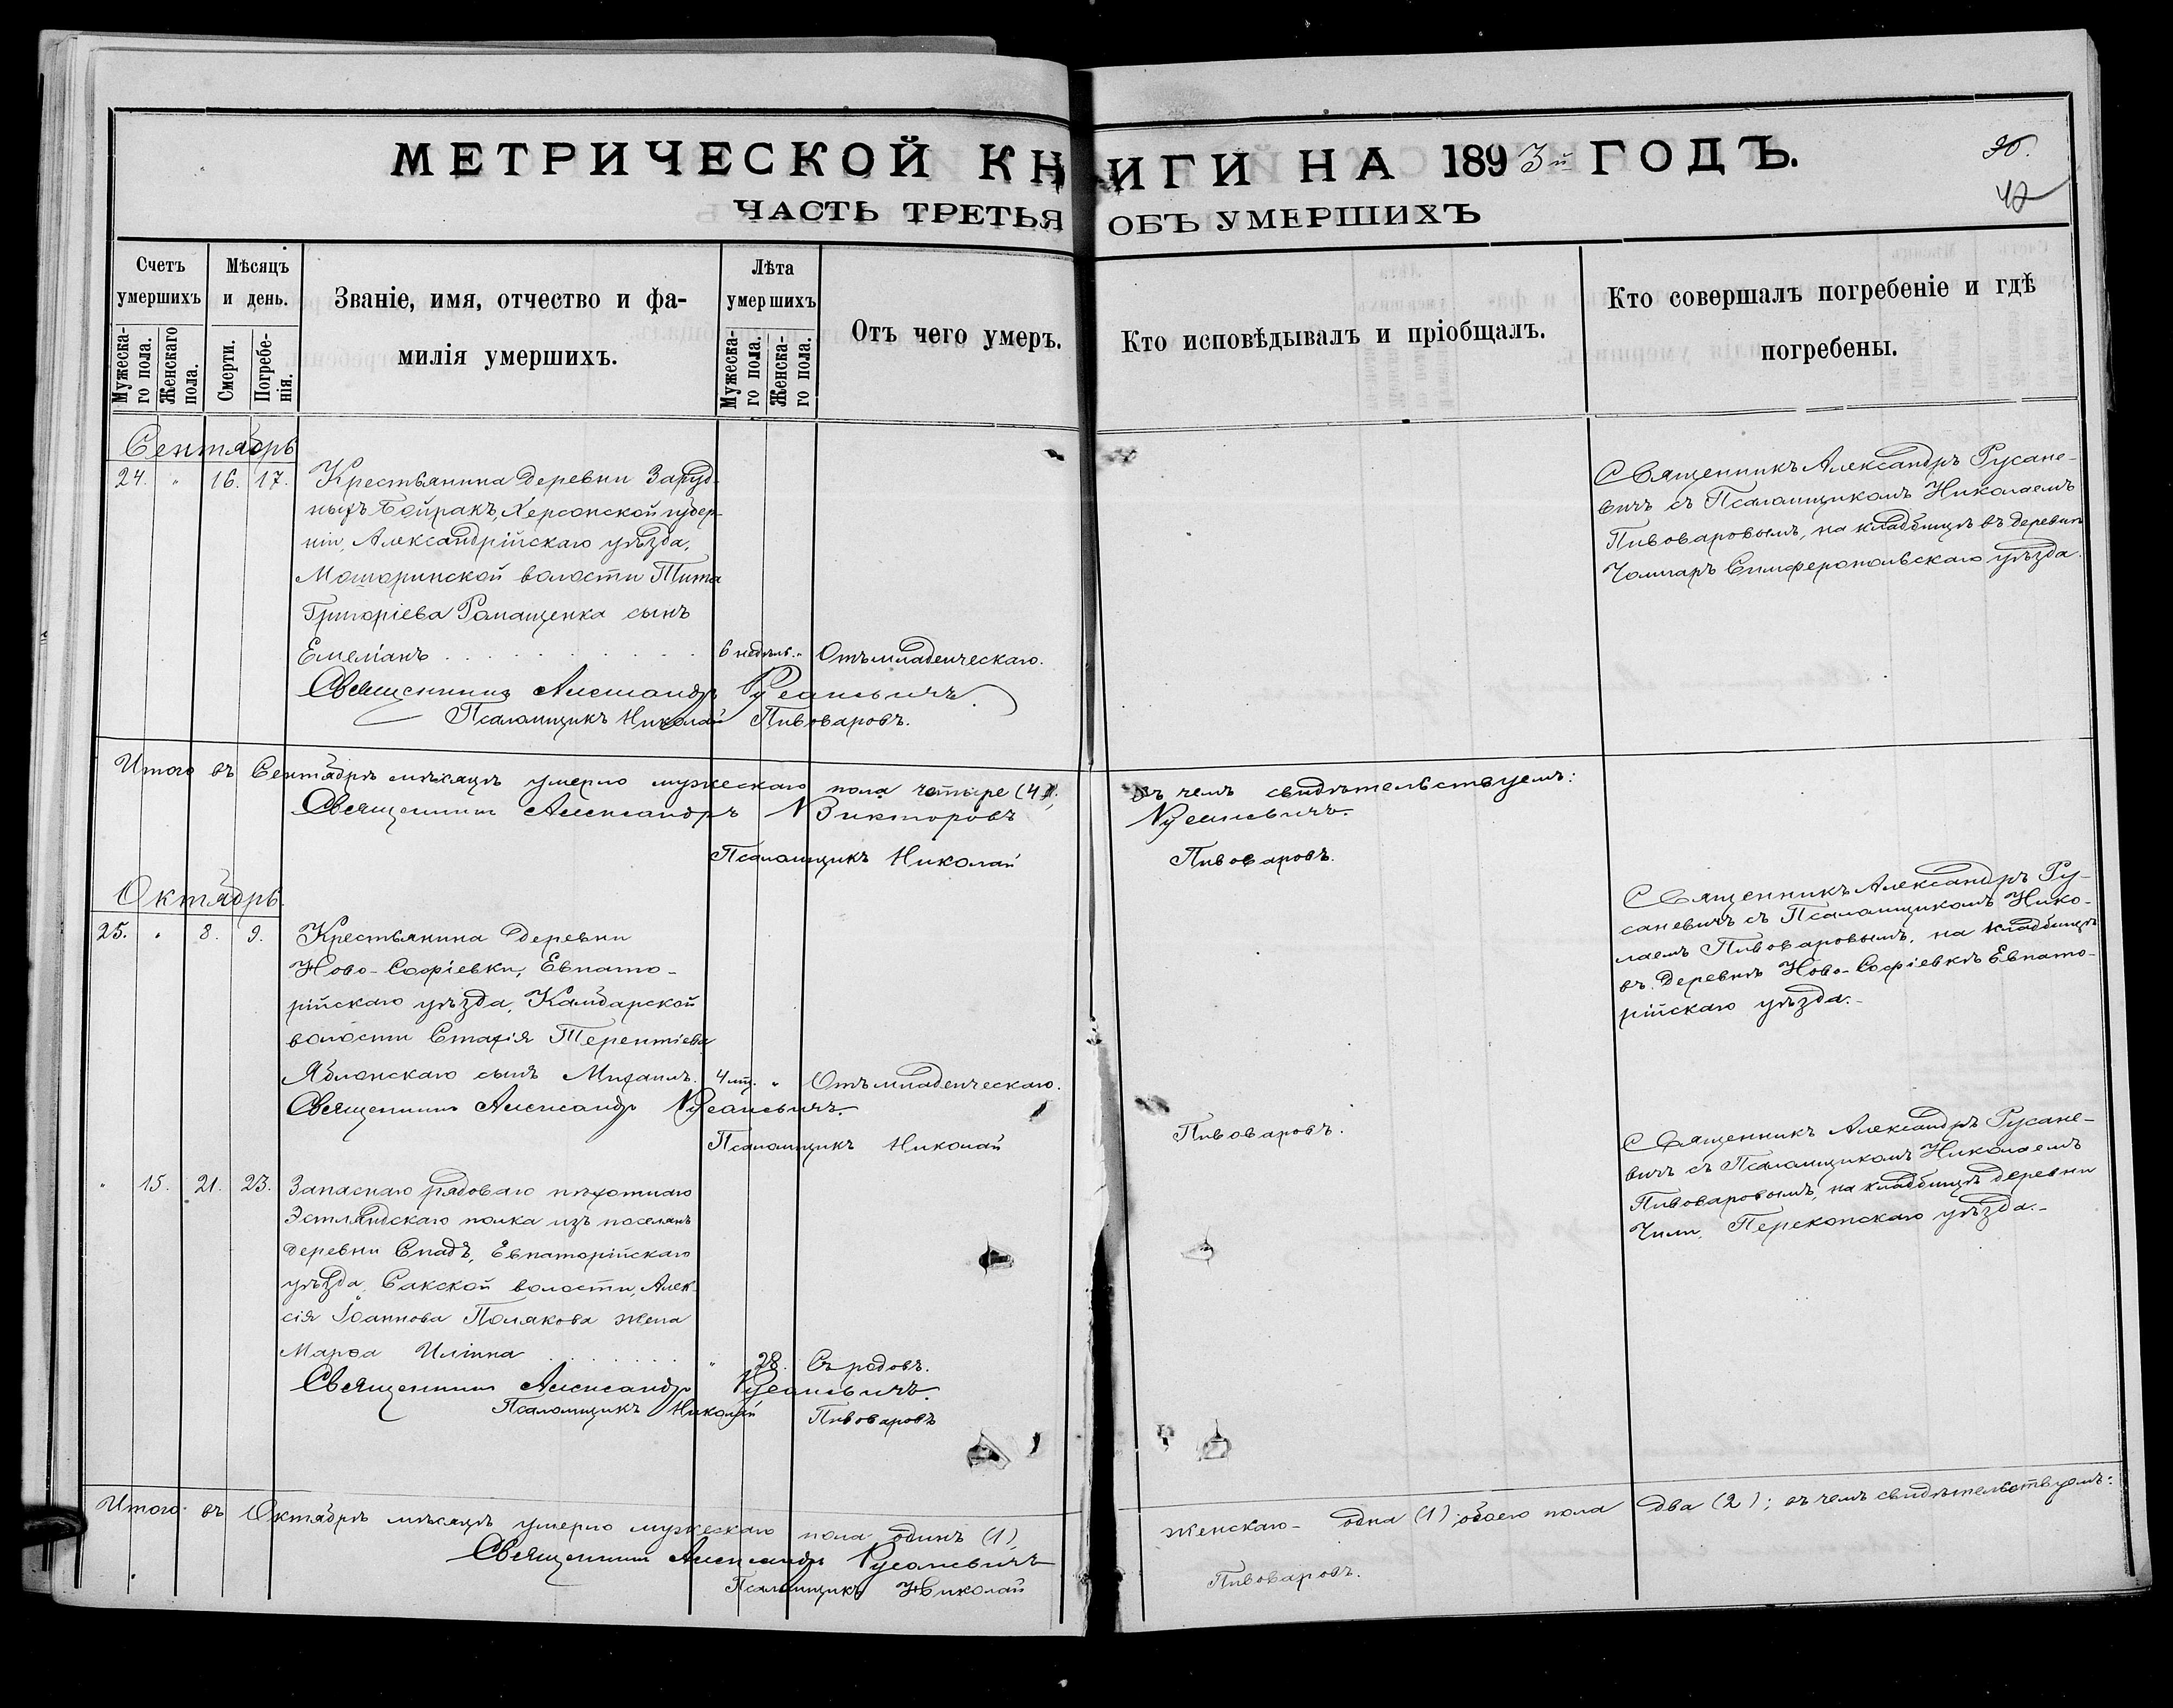 МЕТРИЧЕСКОЙ КНИГИ НА 1893й ГОДЪ.
ЧАСТЬ ТРЕТЬЯ ОБЪ УМЕРШИХЪ
Счетъ умершихъ
Мужеска-го пола.
Женскаго пола.
Мѣсяцъ и день.
Смерти.
Погребе-нія.
Званіе, имя, отчество и фа-
милія умершихъ.
Лѣта умершихъ
Мужеска-го пола.
Женска-го пола.
Отъ чего умеръ.
Кто исповѣдывалъ и пріобщалъ.
Кто совершалъ погребеніе и гдѣ
погребены.
Сентябрь
24. " 16. 17. Крестьянина деревни Заруд-
ныхъ Байракъ, Херсонской губер-
ніи, Александрійскаго уѣзда,
Мошоринской волости Тита
Григоріева Ромащенка сынъ
Емеліанъ 6 недѣль. " Отъ младенческаго.
Священникъ Александръ Русаневичъ.
Псаломщикъ Николай Пивоваровъ.
Священникъ Александръ Русане-
вичъ съ Псаломщикомъ Николаемъ
Пивоваровымъ, на кладбищѣ въ деревнѣ
Чонгаръ Симферопольскаго уѣзда.
Итого въ Сентябрѣ мѣсяцѣ умерло мужескаго пола четыре (4); въ чемъ свидѣтельствуемъ:
Священникъ Александръ Викторовъ Русаневичъ.
Псаломщикъ Николай Пивоваровъ.
Октябрь.
25. " 8. 9. Крестьянина деревни
Ново-Софіевки, Евпато-
рійскаго уѣзда, Камбарской
волости Стахія Терентіева
Яблонскаго сынъ Михаилъ. 4 мѣ. " Отъ младенческаго.
Священникъ Александръ Русаневичъ.
Псаломщикъ Николай Пивоваровъ.
Священникъ Александръ Ру-
саневичъ съ Псаломщикомъ Нико-
лаемъ Пивоваровымъ, на кладбищѣ
въ деревнѣ Ново-Софіевкѣ Евпато-
рійскаго уѣзда.-
" 15. 21. 23. Запаснаго рядоваго пѣхотнаго
Эстляндскаго полка изъ поселянъ
деревни Спадъ, Евпаторійскаго
уѣзда, Сакской волости, Алек-
сія Іоаннова Полякова жена
Марѳа Иліина " 28. Съ родовъ.
Священникъ Александръ Русаневичъ.
Псаломщикъ Николай Пивоваровъ
Священникъ Александръ Русане-
вичъ съ Псаломщикомъ Николаемъ
Пивоваровымъ, на кладбищѣ деревни
Чили, Перекопскаго уѣзда.-
Итого въ Октябрѣ мѣсяцѣ умерло мужескаго пола одинъ (1), женскаго- одна (1) обоего пола два (2); въ чемъ свидѣтельствуемъ:
Священникъ Александръ Русаневичъ
Псаломщикъ Николай Пивоваровъ.